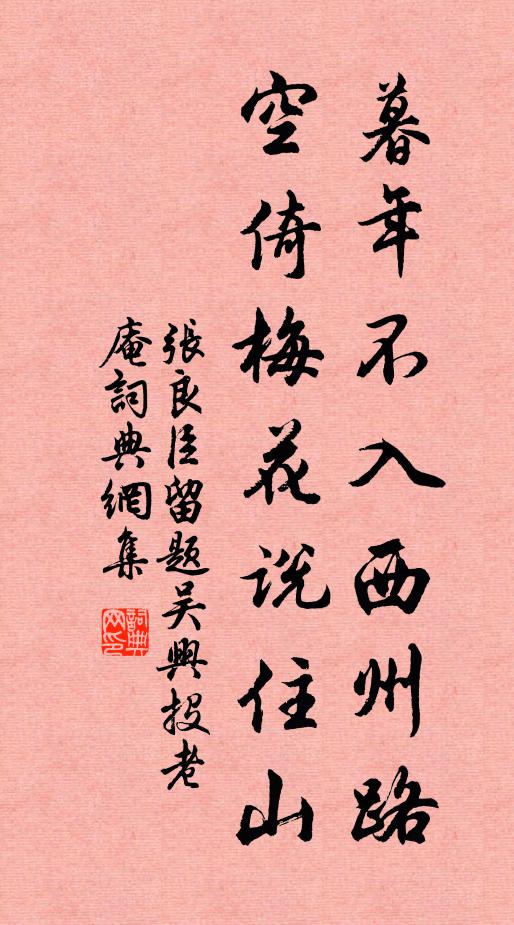 暮年不入西州路
空倚梅花說住山
張良臣留題吳興投老
庵詞典網集
詞典
网印